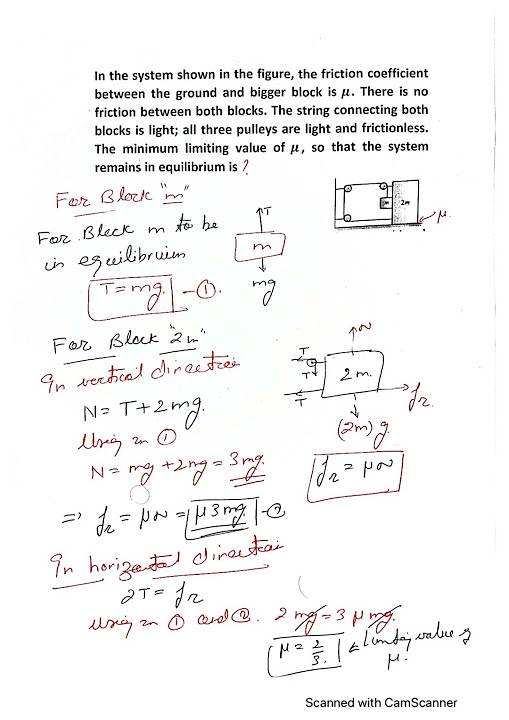 In the system shown in the figure, the friction coefficient
between the ground and bigger block is μ. There is no
friction between both blocks. The string connecting both
blocks is light; all three pulleys are light and frictionless.
The minimum limiting value of μ, so that the system
remains in equilibrium is ?
For Block "m"
For Block m to be
in equilibrium
T = mg —①.
T
m
mg
m
2m
μ.
For Block "2m"
In vertical direction
N = T + 2mg.
Using in ①
N = mg + 2mg = 3mg.
⇒ fr = μN = μ3mg —②
N
T
T
T
2m.
fr
(2m)g
fr = μN
In horizontal direction
2T = fr
Using in ① and ②. 2mg = 3μmg.
μ = 2/3. ← limiting value of
μ.
Scanned with CamScanner